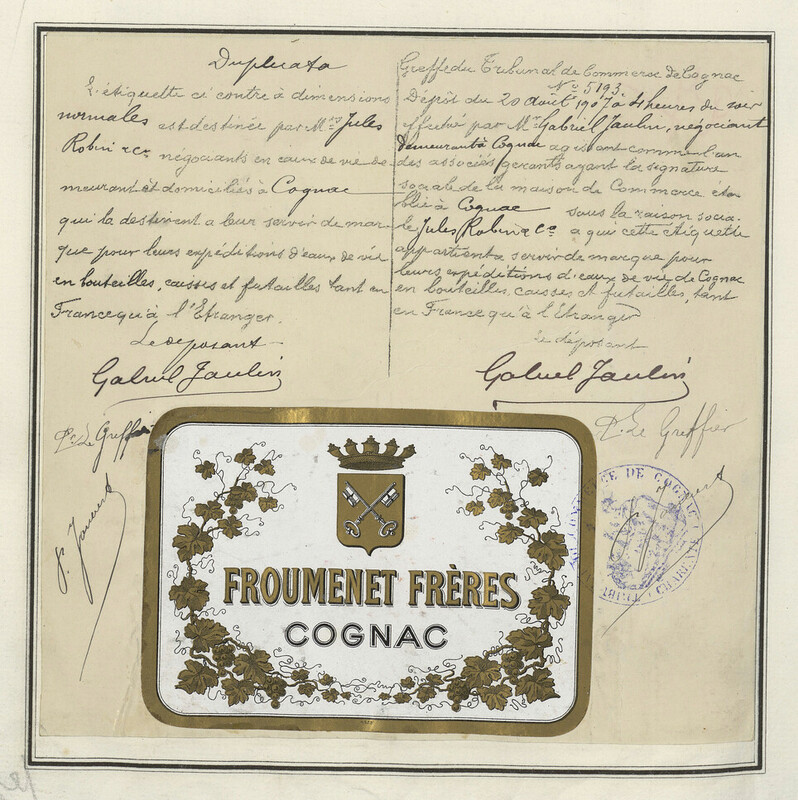 Duplicata
L'étiquette ci contre à dimensions
normales est destinée par Mrs Jules
Robin & Cie négociants en eaux de vie de-
meurant et domiciliés à Cognac
qui la destinent a leur servir de mar-
que pour leurs expéditions d'eaux de vie
en bouteilles, caisses et futailles tant en
France qu'à l'Etranger.
Le déposant
Gabriel Jaulin
Pr. Le Greffier
Greffe du Tribunal de Commerce de Cognac
No 5193
Dépôt du 20 août 1907 à 4 heures du soir
effectué par Mr Gabriel Jaulin, négociant
demeurant à Cognac agissant comme l'un
des associés gérants ayant la signature
sociale de la maison de Commerce éta-
blie à Cognac sous la raison socia-
le Jules Robin & Cie a qui cette étiquette
appartient a servir de marque pour
leurs expéditions d'eaux de vie de Cognac
en bouteilles, caisses et futailles, tant
en France qu'à l'Etranger
Le déposant
Gabriel Jaulin
Pr. Le Greffier
FROUMENET FRÈRES
COGNAC
DE COGNAC
CHARENTE
TRIBUNAL